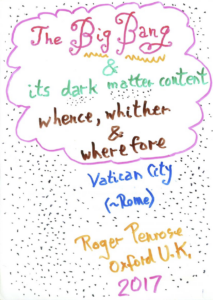 The Big Bang
&
its dark matter content
whence, whither
&
wherefore
Vatican City
(~Rome)
Roger Penrose
Oxford U.K,
2017